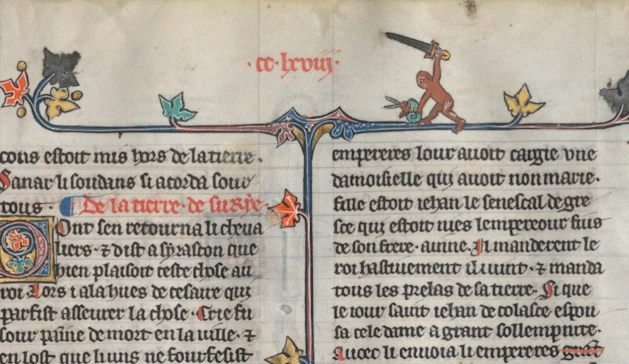 ·cc·lxviij·
cous estoit mis hors de la tierre·
Sanar li soudans si acorda sour
tous· De la tierre· de surye·
Ont sen retourna li cheua
liers· ⁊ dist a syraston que
bien plaisoit ceste chose au
roi· Lors i ala hues de cesaire qui
parfist asseurer la chose· Crie fu
sour paine de mort en la uille· ⁊
en lost que li uns ne fourfesist
empereres lour auoit cargie vne
damoisielle qui auoit non marie·
fille estoit iehan le senescal de gre
sce qui estoit nies lempereour fius
de son frere· ainne· Il manderent le
roi hastiuement il i uint· ⁊ manda
tous les prelas de sa tierre· Si que
le iour saint iehan de colasce espou
sa cele dame a grant sollempnite·
Auoec li enuoia li empereres